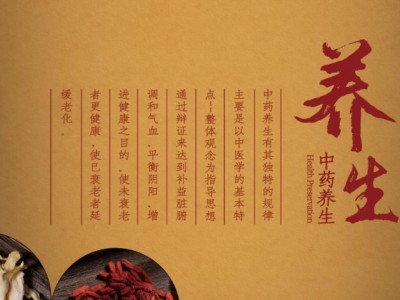 养生
中药养生
Health Preservation
中药养生有其独特的规律
主要是以中医学的基本特
点—整体观念为指导思想
通过辩证来达到补益脏腑
调和气血、平衡阴阳、增
进健康之目的。使未衰老
者更健康，使已衰老者延
缓老化。